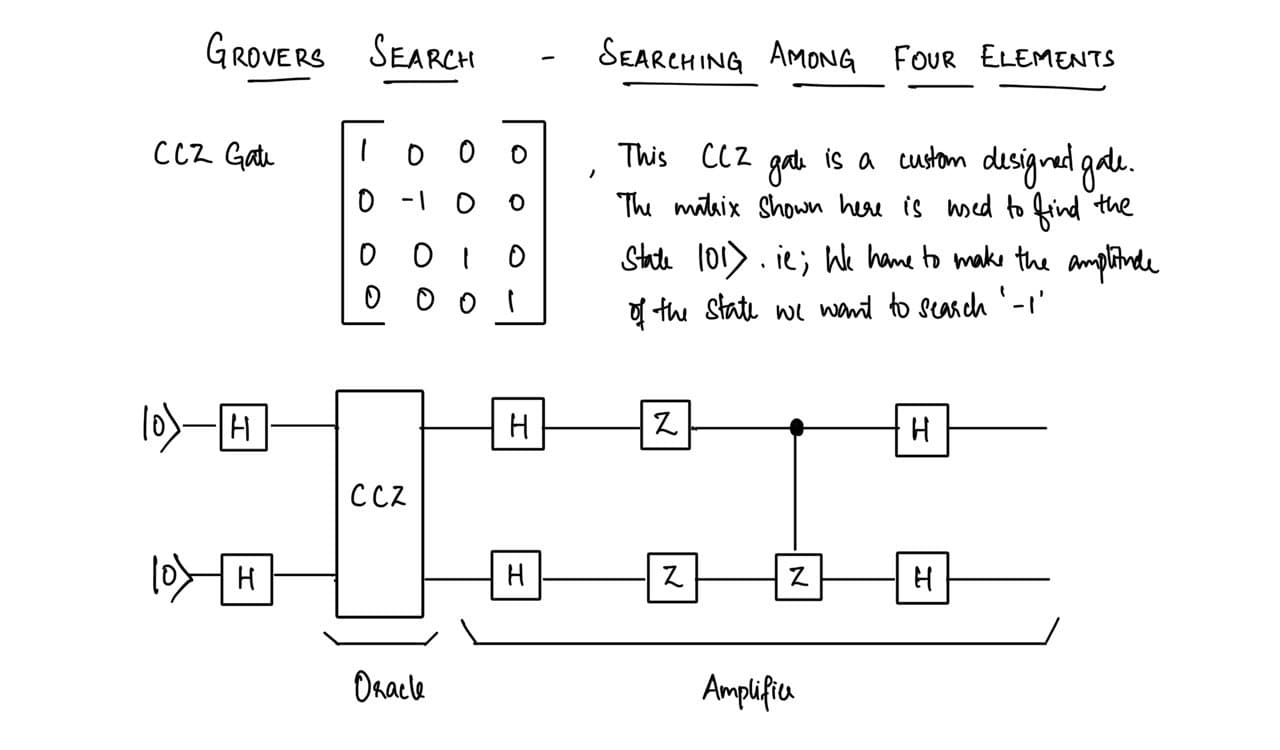 GROVERS SEARCH - SEARCHING AMONG FOUR ELEMENTS
CCZ Gate
1 0 0 0
0 -1 0 0
0 0 1 0
0 0 0 1
, This CCZ gate is a custom designed gate.
The matrix shown here is used to find the
State |01⟩. ie; We have to make the amplitude
of the state we want to search '-1'
|0⟩ H CCZ H Z H
|0⟩ H H Z Z H
Oracle
Amplifier